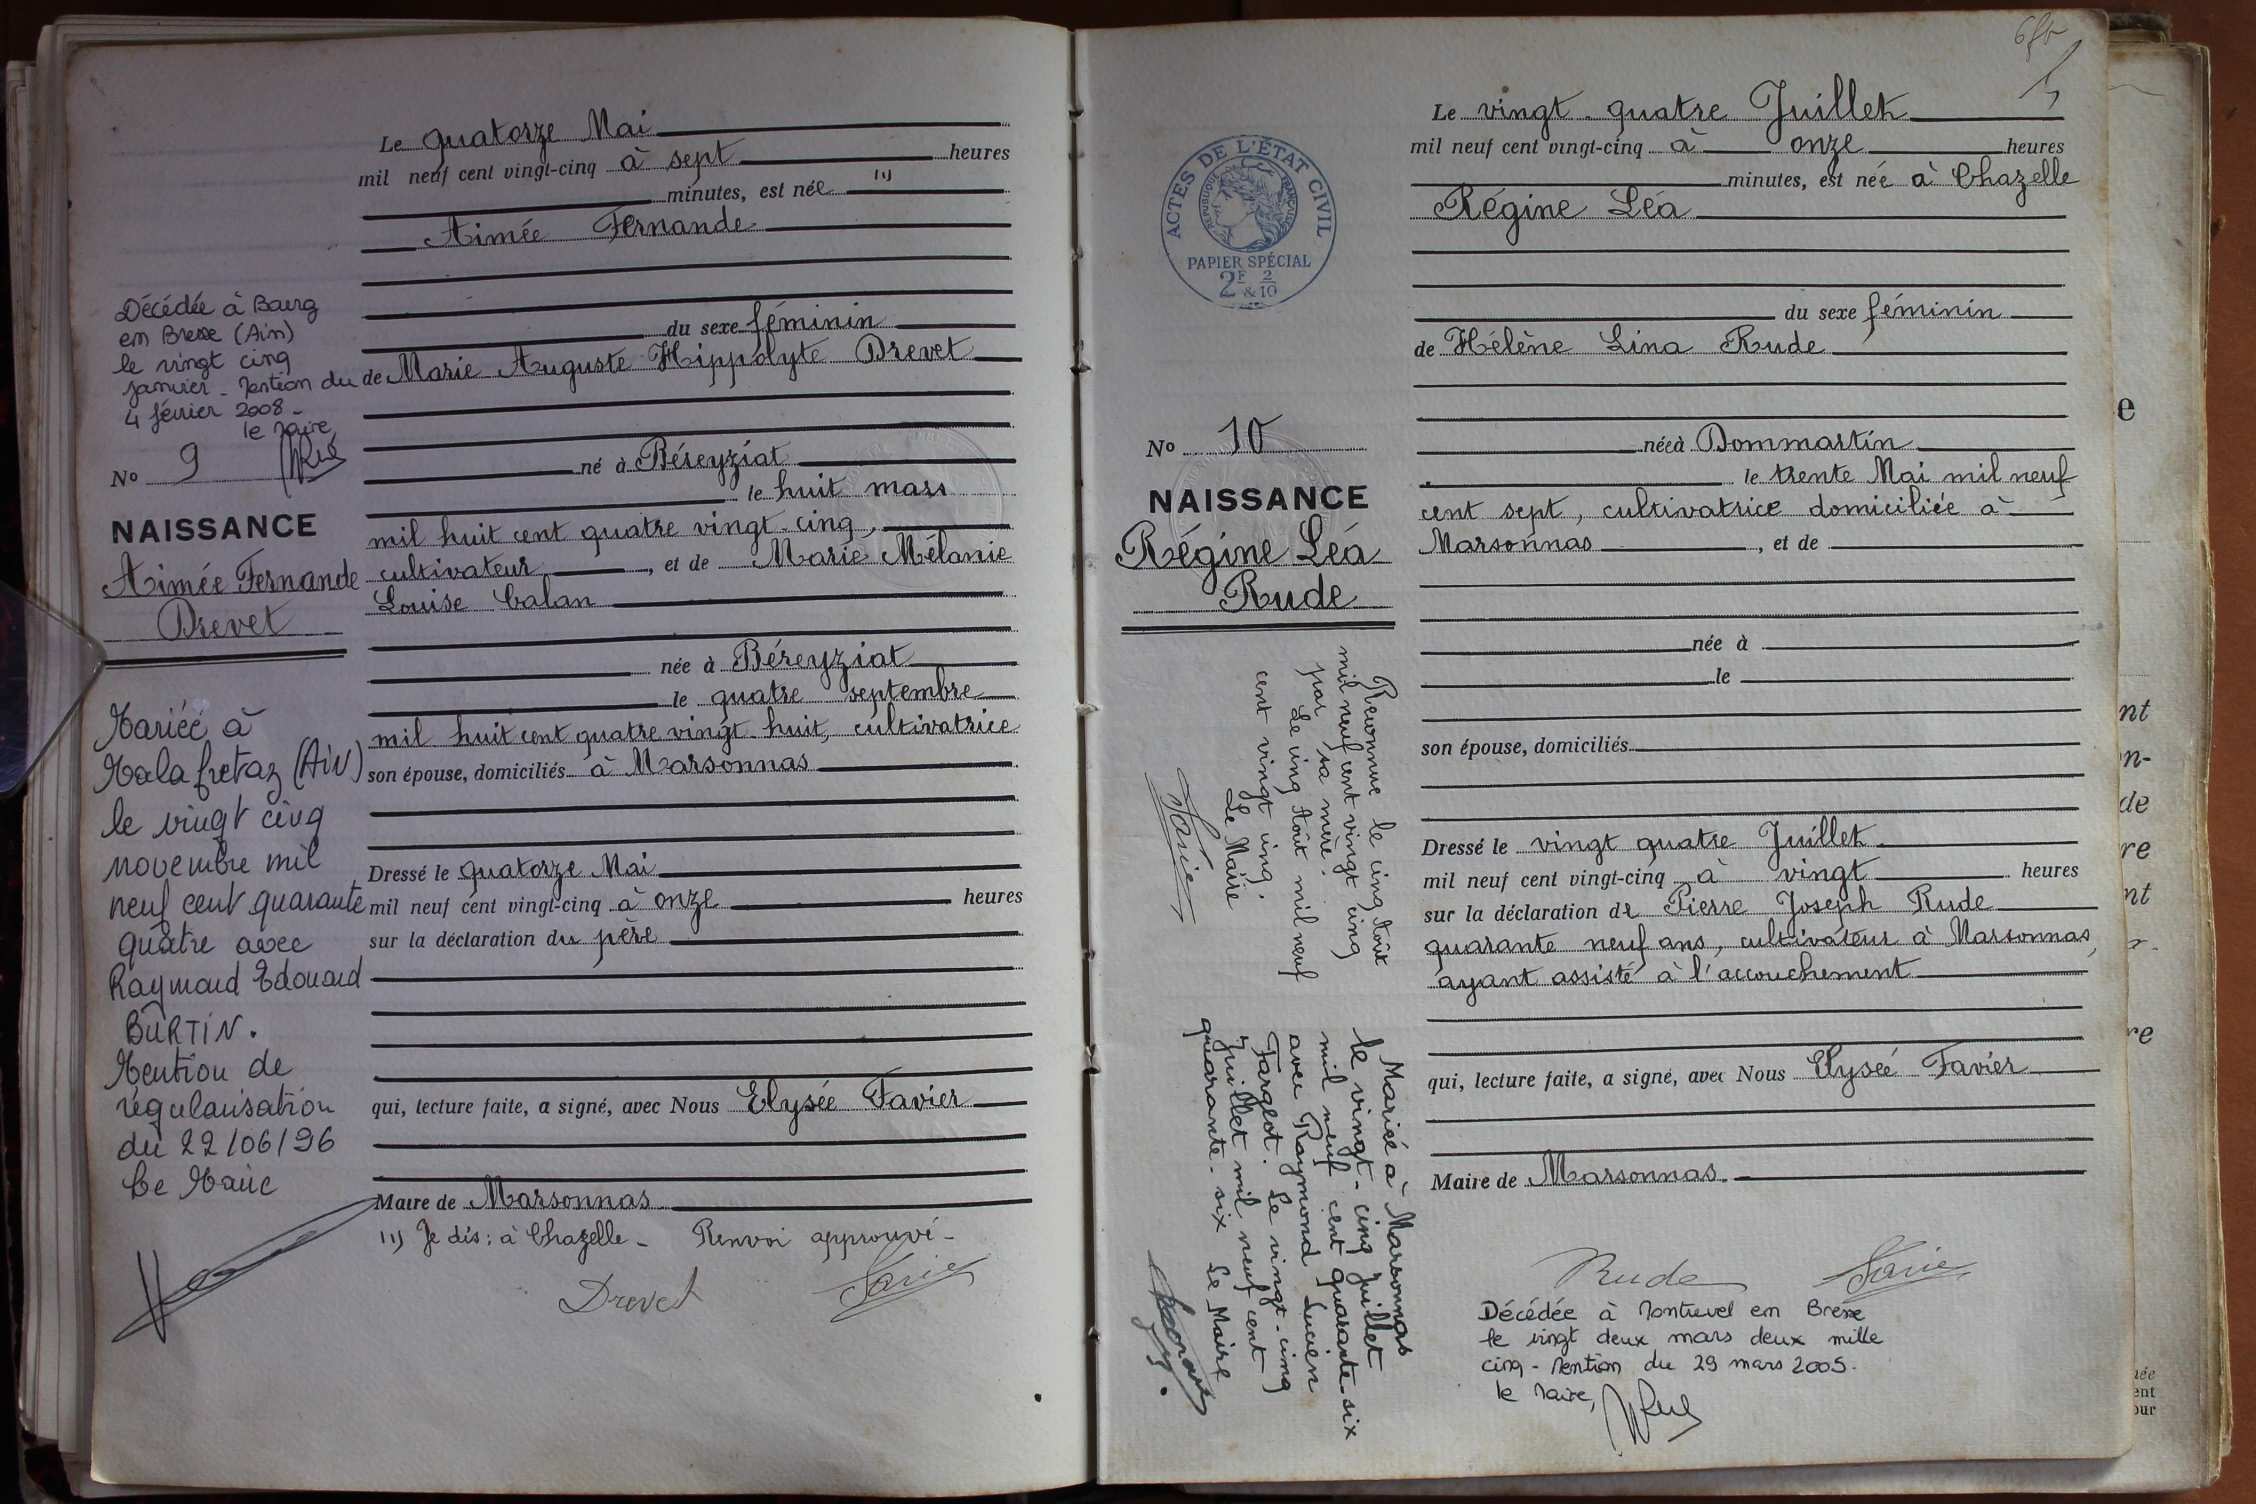 Le quatorze Mai
mil neuf cent vingt-cinq à sept heures
minutes, est née (1)
Aimée Fernande
du sexe féminin
de Marie Auguste Hippolyte Drevet
né à Béreyziat
le huit mars
mil huit cent quatre vingt-cinq,
cultivateur, et de Marie Mélanie
Louise Calan
née à Béreyziat
le quatre septembre
mil huit cent quatre vingt-huit, cultivatrice
son épouse, domiciliés à Marsonnas
Dressé le quatorze Mai
mil neuf cent vingt-cinq à onze heures
sur la déclaration du père
qui, lecture faite, a signé, avec Nous Elysée Favier
Maire de Marsonnas
(1) Je dis : à Chazelle - Renvoi approuvé -
Drevet
Favier
Décédée à Bourg
en Bresse (Ain)
le vingt cinq
janvier - Mention du
4 février 2008 -
le Maire
No 9
NAISSANCE
Aimée Fernande
Drevet
Mariée à
Malafretaz (Ain)
le vingt cinq
novembre mil
neuf cent quarante
quatre avec
Raymond Edouard
BURTIN.
Mention de
régularisation
du 22/06/96
Le Maire
ACTES DE L'ÉTAT CIVIL
RÉPUBLIQUE FRANÇAISE
PAPIER SPÉCIAL
2F 2
& 10
No 10
NAISSANCE
Régine Léa
Rude
Reconnue le cinq Août
mil neuf cent vingt cinq
par sa mère.
Le cinq Août mil neuf
cent vingt cinq.
Le Maire
Favier
Mariée à Marsonnas
le vingt-cinq juillet
mil neuf cent quarante-six
avec Raymond Lucien
Fargeot. Le vingt-cinq
juillet mil neuf cent
quarante-six Le Maire
Le vingt-quatre Juillet
mil neuf cent vingt-cinq à onze heures
minutes, est née à Chazelle
Régine Léa
du sexe féminin
de Hélène Lina Rude
née à Dommartin
le trente Mai mil neuf
cent sept, cultivatrice domiciliée à
Marsonnas, et de
née à
le
son épouse, domiciliés
Dressé le vingt quatre Juillet
mil neuf cent vingt-cinq à vingt heures
sur la déclaration de Pierre Joseph Rude
quarante neuf ans, cultivateur à Marsonnas,
ayant assisté à l'accouchement
qui, lecture faite, a signé, avec Nous Elysée Favier
Maire de Marsonnas
Rude
Favier
Décédée à Montrevel en Bresse
le vingt deux mars deux mille
cinq - Mention du 29 mars 2005.
le Maire,